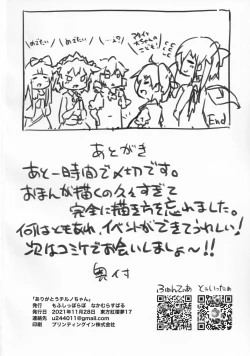 めでたい
めでたい
End
あとがき
あと一時間で〆切です。
まほんが描くの久々すぎて
完全に描き方を忘れました。
何はともあれ、イベントができてうれしい!
次はコミケでお会いしましょ〜!!
奥付
「ありがとうチルノちゃん」
発行 もふしっぽらぼ なかむらすばる
発行日 2021年11月28日 東方紅楼夢17
連絡先 u244011@gmail.com
印刷 プリンティングイン株式会社